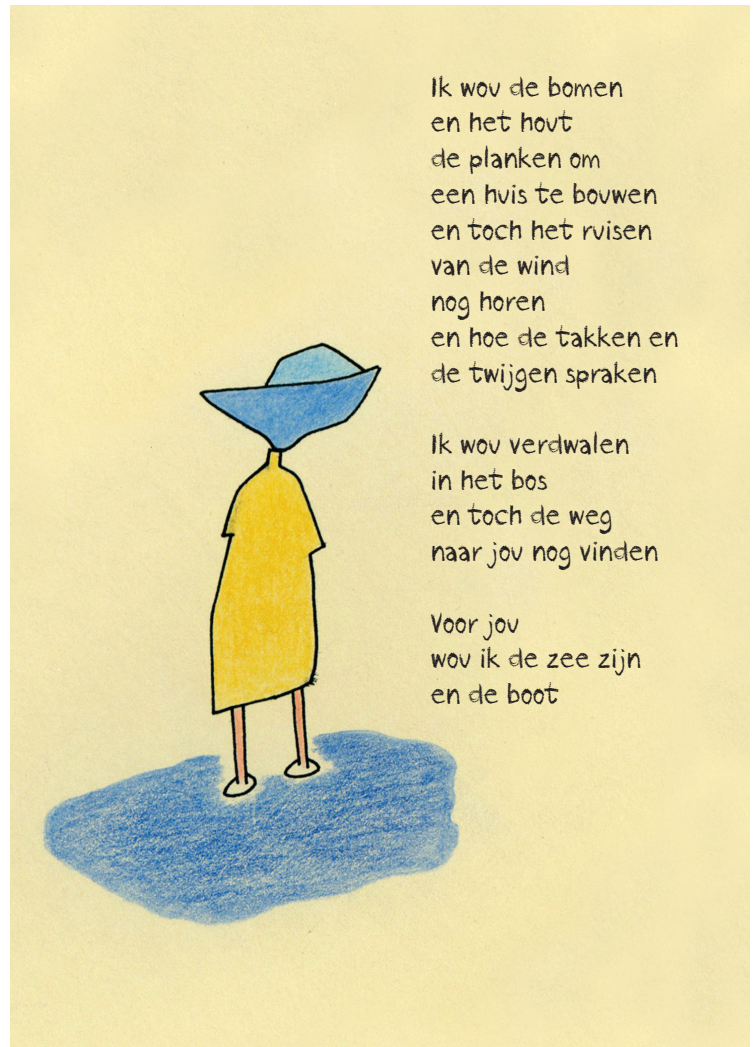 Ik wou de bomen
en het hout
de planken om
een huis te bouwen
en toch het ruisen
van de wind
nog horen
en hoe de takken en
de twijgen spraken
Ik wou verdwalen
in het bos
en toch de weg
naar jou nog vinden
Voor jou
wou ik de zee zijn
en de boot